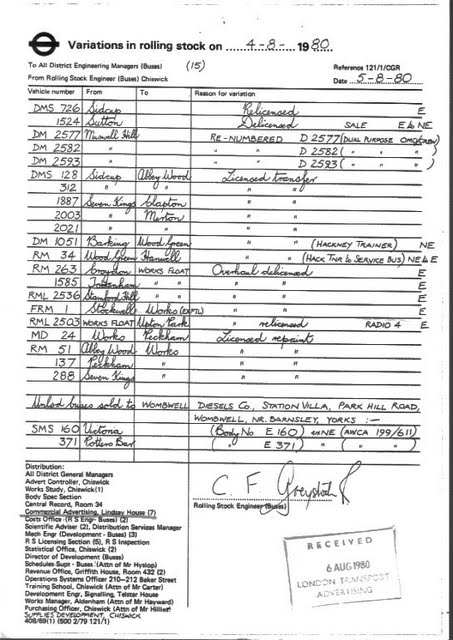 Variations in rolling stock on 4-8- 1980
To All District Engineering Managers (Buses) (15) Reference 121/1/CGR
From Rolling Stock Engineer (Buses) Chiswick Date 5-8-80
Vehicle number From To Reason for variation
DMS 726 Sidcup Relicensed E
1524 Sutton Delicensed SALE E to NE
DM 2577 Muswell Hill RE-NUMBERED D 2577 (DUAL PURPOSE OMO/CREW)
DM 2582 " " " D 2582 ( " " " )
DM 2593 " " " D 2593 ( " " " )
DMS 128 Sidcup Abbey Wood Licensed transfer
312 " " " " "
1887 Seven Kings Clapton " "
2003 " Merton " "
2021 " " " "
DM 1051 Barking Wood Green " " (HACKNEY TRAINER) NE
RM 34 Wood Green Hanwell " " (HACK TNR to SERVICE BUS) NE to E
RM 263 Croydon WORKS FLOAT Overhaul delicensed E
1585 Tottenham " " " " E
RML 2536 Stamford Hill " " " " E
FRM 1 Stockwell Works (EXPTL) " " E
RML 2503 WORKS FLOAT Upton Park " relicensed RADIO 4 E
MD 24 Works Peckham Licensed repaint
RM 51 Abbey Wood Works " "
137 Peckham " " "
288 Seven Kings " " "
Unlicd buses sold to WOMBWELL DIESELS Co., STATION VILLA, PARK HILL ROAD,
WOMBWELL, NR. BARNSLEY, YORKS :—
SMS 160 Victoria (Body No E 160) ex NE (AWCA 199/611)
371 Potters Bar ( " E 371) " ( " " )
Distribution:
All District General Managers
Advert Controller, Chiswick
Works Study, Chiswick (1)
Body Spec Section
Central Record, Room 34
Commercial Advertising, Lindsay House (7)
Costs Office (R S Engr- Buses) (2)
Scientific Adviser (2), Distribution Services Manager
Mech Engr (Development - Buses) (3)
R S Licensing Section (5), R S Inspection
Statistical Office, Chiswick (2)
Director of Development (Buses)
Schedules Supt - Buses (Attn of Mr Hyslop)
Revenue Office, Griffith House, Room 432 (2)
Operations Systems Officer 210-212 Baker Street
Training School, Chiswick (Attn of Mr Carter)
Development Engr, Signalling, Telstar House
Works Manager, Aldenham (Attn of Mr Hayward)
Purchasing Officer, Chiswick (Attn of Mr Hillier)
SUPPLIES DEVELOPMENT, CHISWICK
408/69(1) (500 2/79 121/1)
C F
Rolling Stock Engineer (Buses)
RECEIVED
6 AUG 1980
LONDON TRANSPORT
ADVERTISING